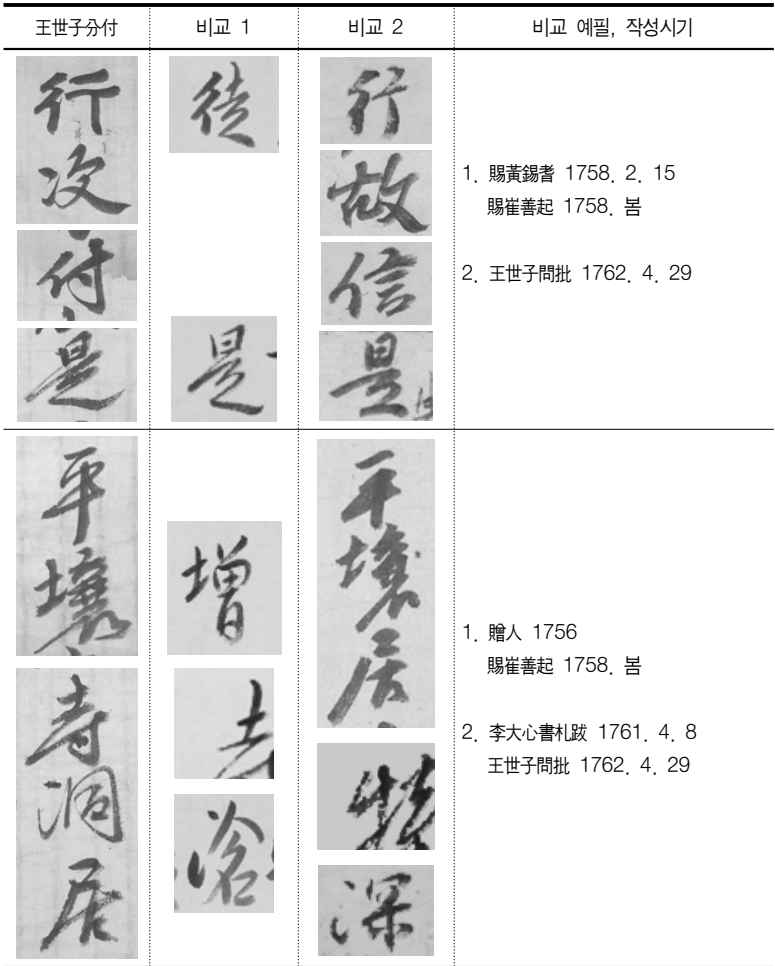 王世子分付
비교 1
비교 2
비교 예필, 작성시기
行
次
付
是
徒
是
行
故
信
是
1. 賜黃錫耆 1758. 2. 15
賜崔善起 1758. 봄
2. 王世子問批 1762. 4. 29
平
壤
寺
洞
居
增
滄
平
壤
居
深
1. 贈人 1756
賜崔善起 1758. 봄
2. 李大心書札跋 1761. 4. 8
王世子問批 1762. 4. 29